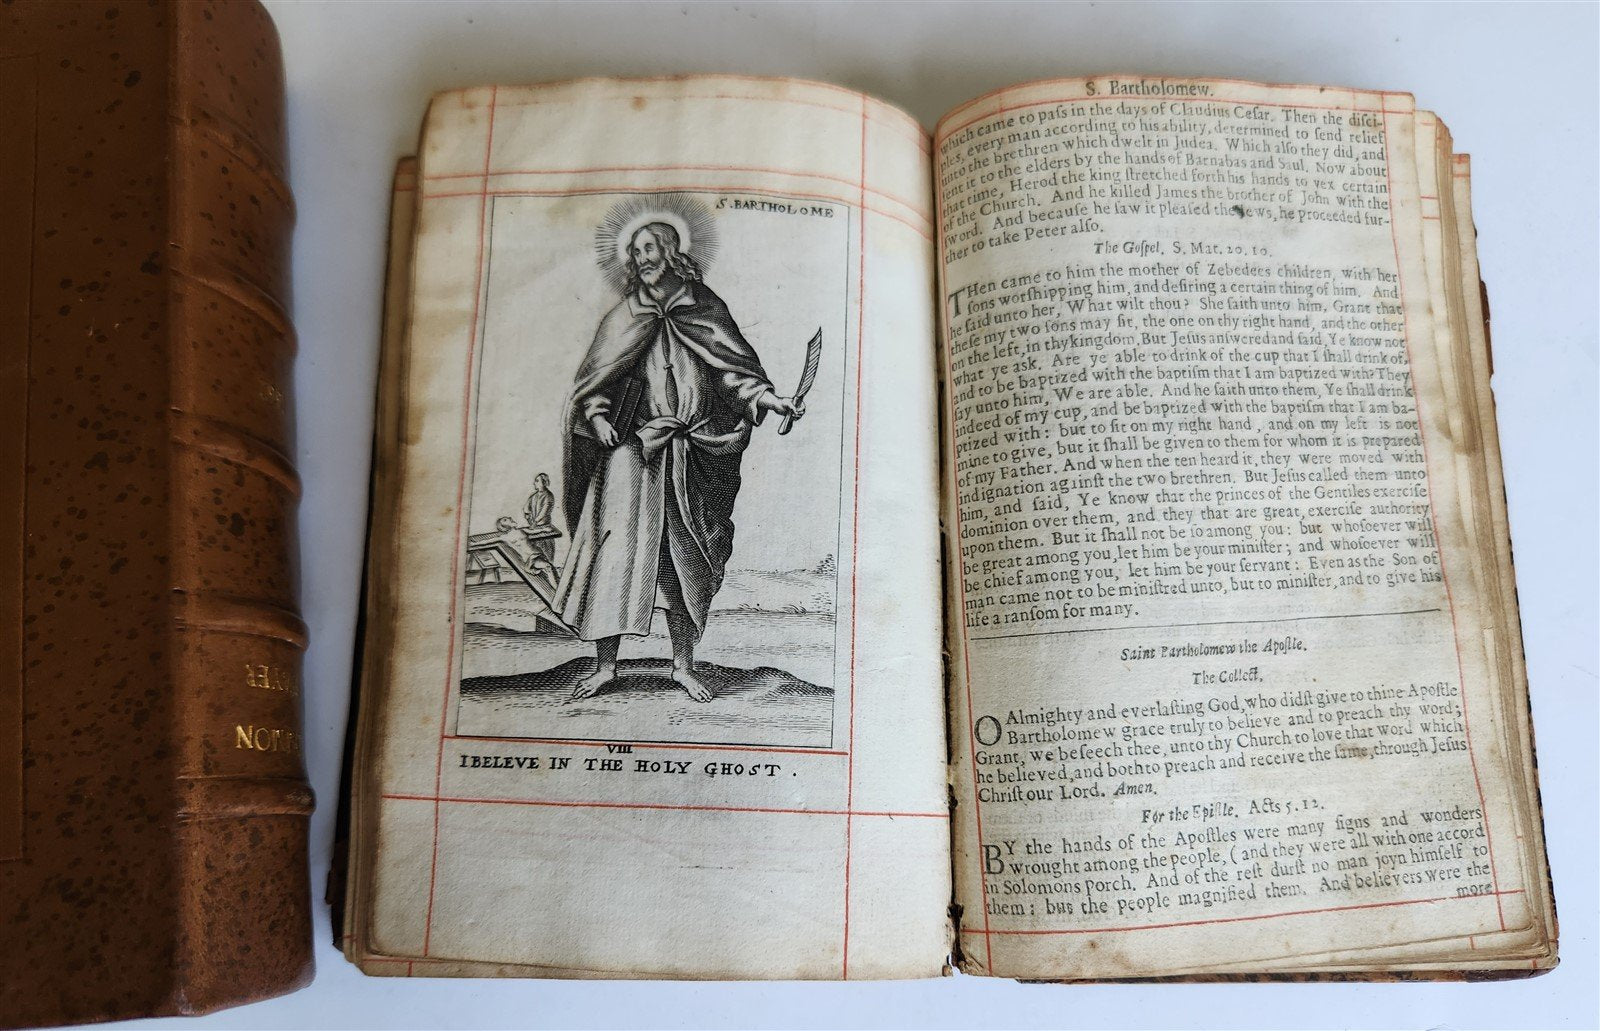 S. BARTHOLOME
VIII
I BELEVE IN THE HOLY GHOST .
S. Bartholomew.
which came to paſs in the days of Claudius Ceſar. Then the diſci-
ples, every man according to his ability, determined to ſend relief
unto the brethren which dwelt in Judea. Which alſo they did, and
ſent it to the elders by the hands of Barnabas and Saul. Now about
that time, Herod the king ſtretched forth his hands to vex certain
of the Church. And he killed James the brother of John with the
ſword. And becauſe he ſaw it pleaſed the Jews, he proceeded fur-
ther to take Peter alſo.
The Goſpel. S. Mat. 20. 10.
THen came to him the mother of Zebedees children, with her
ſons worſhipping him, and deſiring a certain thing of him. And
he ſaid unto her, What wilt thou? She ſaith unto him, Grant that
theſe my two ſons may ſit, the one on thy right hand, and the other
on the left, in thy kingdom, But Jeſus anſwered and ſaid, Ye know not
what ye ask. Are ye able to drink of the cup that I ſhall drink of,
and to be baptized with the baptiſm that I am baptized with? They
ſay unto him, We are able. And he ſaith unto them, Ye ſhall drink
indeed of my cup, and be baptized with the baptiſm that I am ba-
ptized with: but to ſit on my right hand, and on my left is not
mine to give, but it ſhall be given to them for whom it is prepared
of my Father. And when the ten heard it, they were moved with
indignation againſt the two brethren. But Jeſus called them unto
him, and ſaid, Ye know that the princes of the Gentiles exerciſe
dominion over them, and they that are great, exerciſe authority
upon them. But it ſhall not be ſo among you: but whoſoever will
be great among you, let him be your miniſter; and whoſoever will
be chief among you, let him be your ſervant: Even as the Son of
man came not to be miniſtred unto, but to miniſter, and to give his
life a ranſom for many.
Saint Bartholomew the Apoſtle.
The Collect.
O Almighty and everlaſting God, who didſt give to thine Apoſtle
Bartholomew grace truly to believe and to preach thy word;
Grant, we beſeech thee, unto thy Church to love that word which
he believed, and both to preach and receive the ſame, through Jeſus
Chriſt our Lord. Amen.
For the Epiſtle. Acts 5. 12.
BY the hands of the Apoſtles were many ſigns and wonders
wrought among the people, (and they were all with one accord
in Solomons porch. And of the reſt durſt no man joyn himſelf to
them: but the people magnified them. And believers were the
more